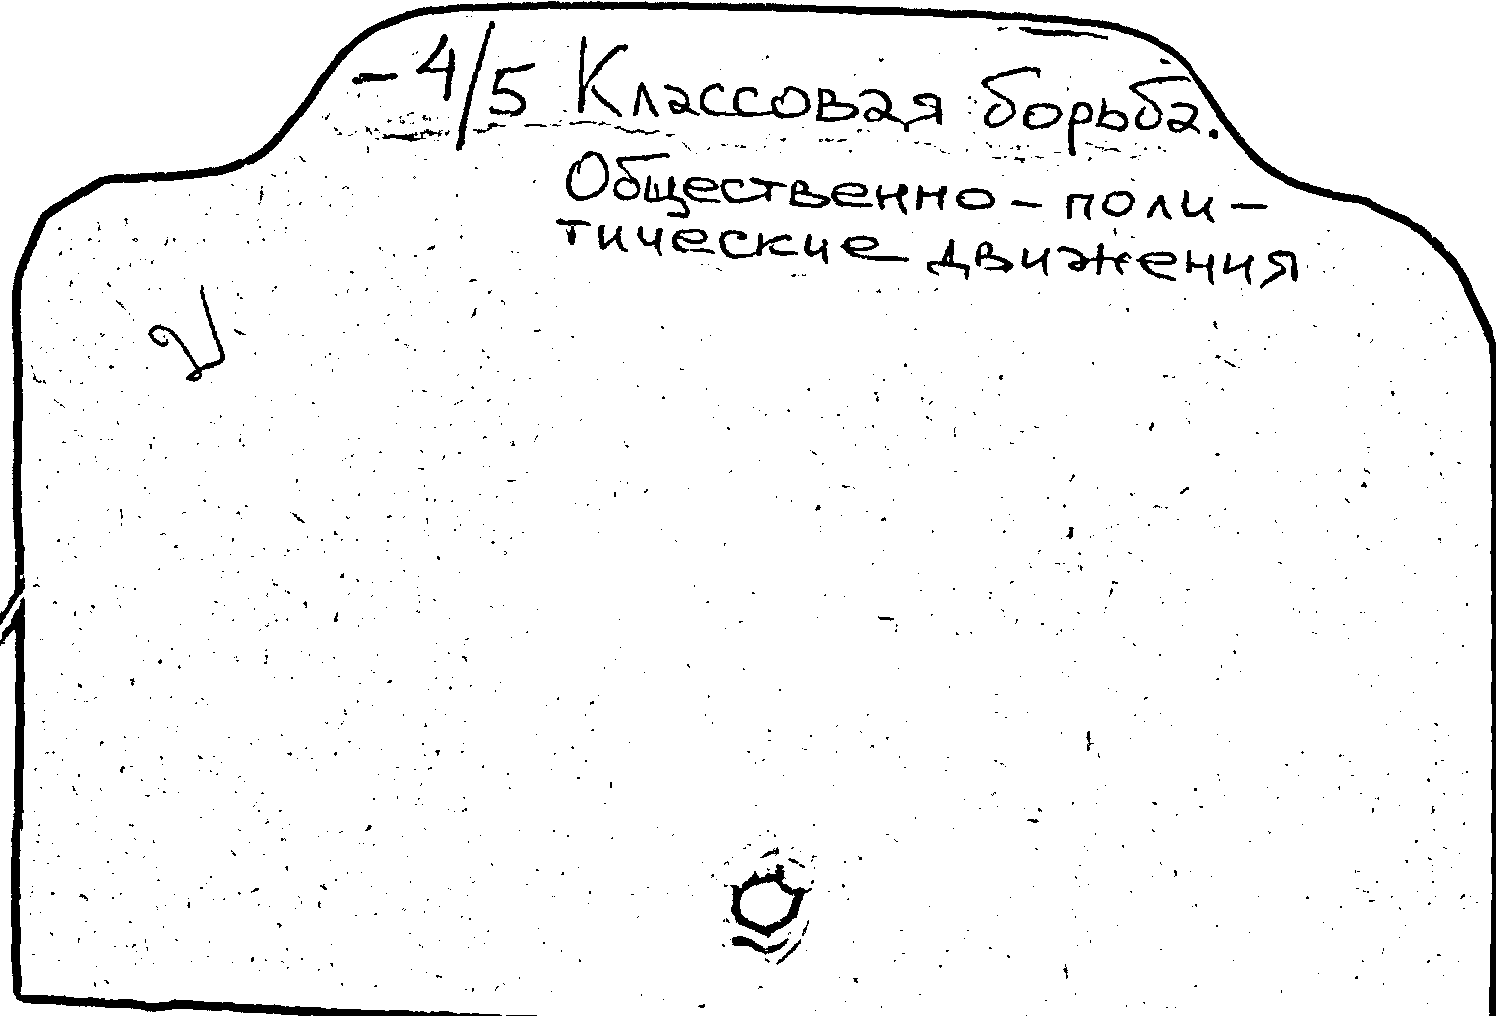 -4/5 Классовая борьба.
Общественно-поли-
тические движения